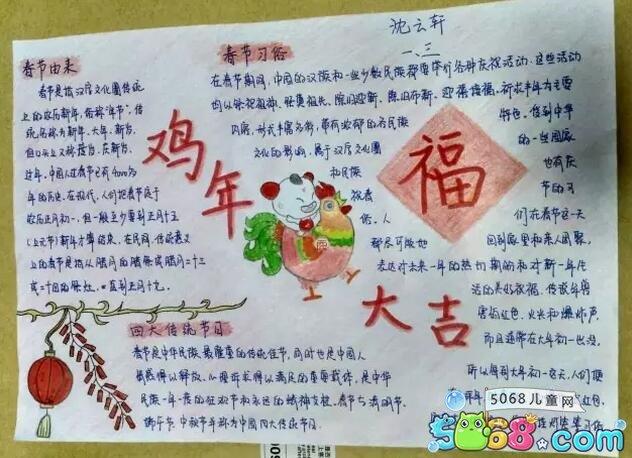 沈云轩
一、三
春节由来
春节是指汉字文化圈传统
上的农历新年,俗称“年节”,传
统名称为新年、大年、新岁、
但口头上又称度岁、庆新岁、
过年,中国人过春节已有4000多
年的历史,在现代,人们把春节定于
农历正月初一,但一般至少要到正月十五
(上元节)新年才算结束,在民间,传统意义
上的春节是指从腊月的腊祭或腊月二十三
或二十四的祭灶,一直到正月十九。
春节习俗
在春节期间,中国的汉族和一些少数民族都要举行各种庆祝活动,这些活动
均以祭祀祖神、祭奠祖先、除旧迎新、迎禧接福、祈求丰年为主要
内容,形式丰富多彩,带有浓郁的各民族
特色,受到中华
文化的影响,属于汉字文化圈
的一些国家
和民族
也有庆
祝春
节的习
俗。人
们在春节这一天
都尽可能地
回到家里和亲人团聚,
表达对未来一年的热切期盼和对新一年生
活的美好祝福,传说年兽
害怕红色、火光和爆炸声,
而且通常在大年初一出没,
所以每到大年初一这天,人们便
红包,
鸡年
福
大吉
四大传统节日
春节是中华民族最隆重的传统佳节,同时也是中国人
情感得以释放、心理诉求得以满足的重要载体,是中华
民族一年一度的狂欢节和永远的精神支柱,春节与清明节、
端午节、中秋节并称为中国四大传统节日。
5068儿童网
5068.com